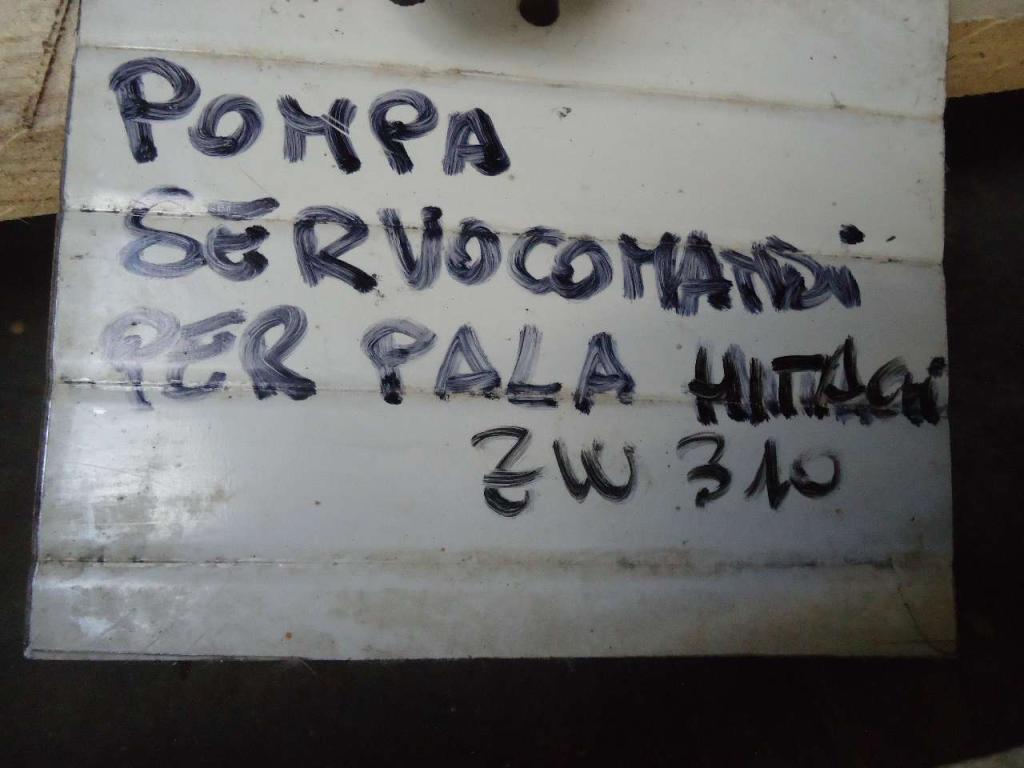 POMPA
SERVOCOMANDI
PER PALA HITACHI
ZW 310